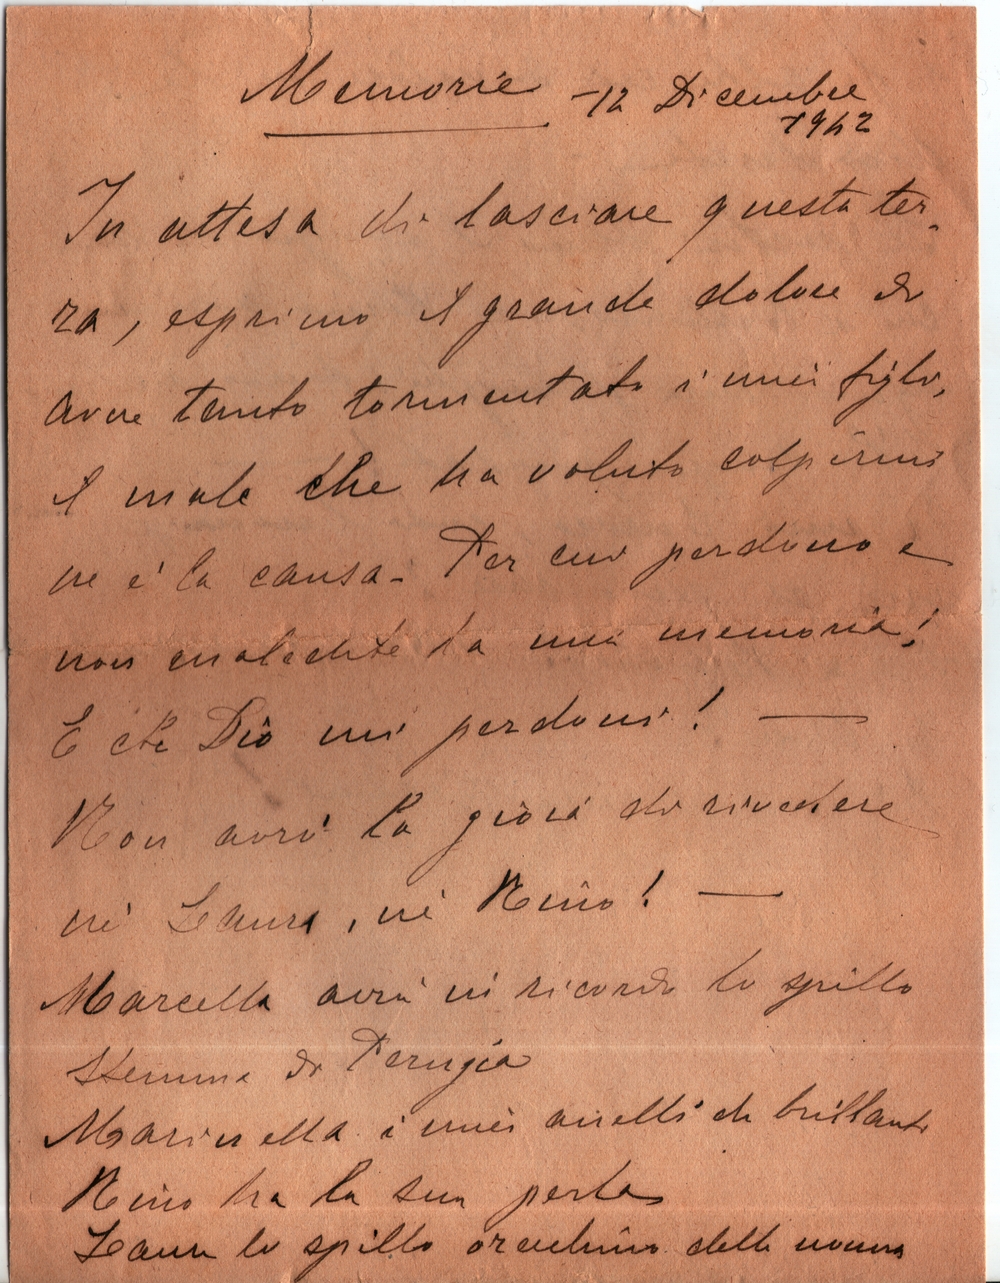 Memorie - 12 Dicembre
1942
In attesa di lasciare questa ter-
ra, esprimo il grande dolore di
avere tanto tormentato i miei figli,
il male che ha voluto colpirmi
ne e' la causa - Per cui perdono e
non maledite la mia memoria!
E che Dio mi perdoni! —
Non avrò la gioia di rivedere
nè Laura, nè Nino! —
Marcella avrà in ricordo lo spillo
stemma di Perugia
Marinella i miei anelli di brillanti
Nino ha la sua perla
Laura lo spillo orecchino della nonna